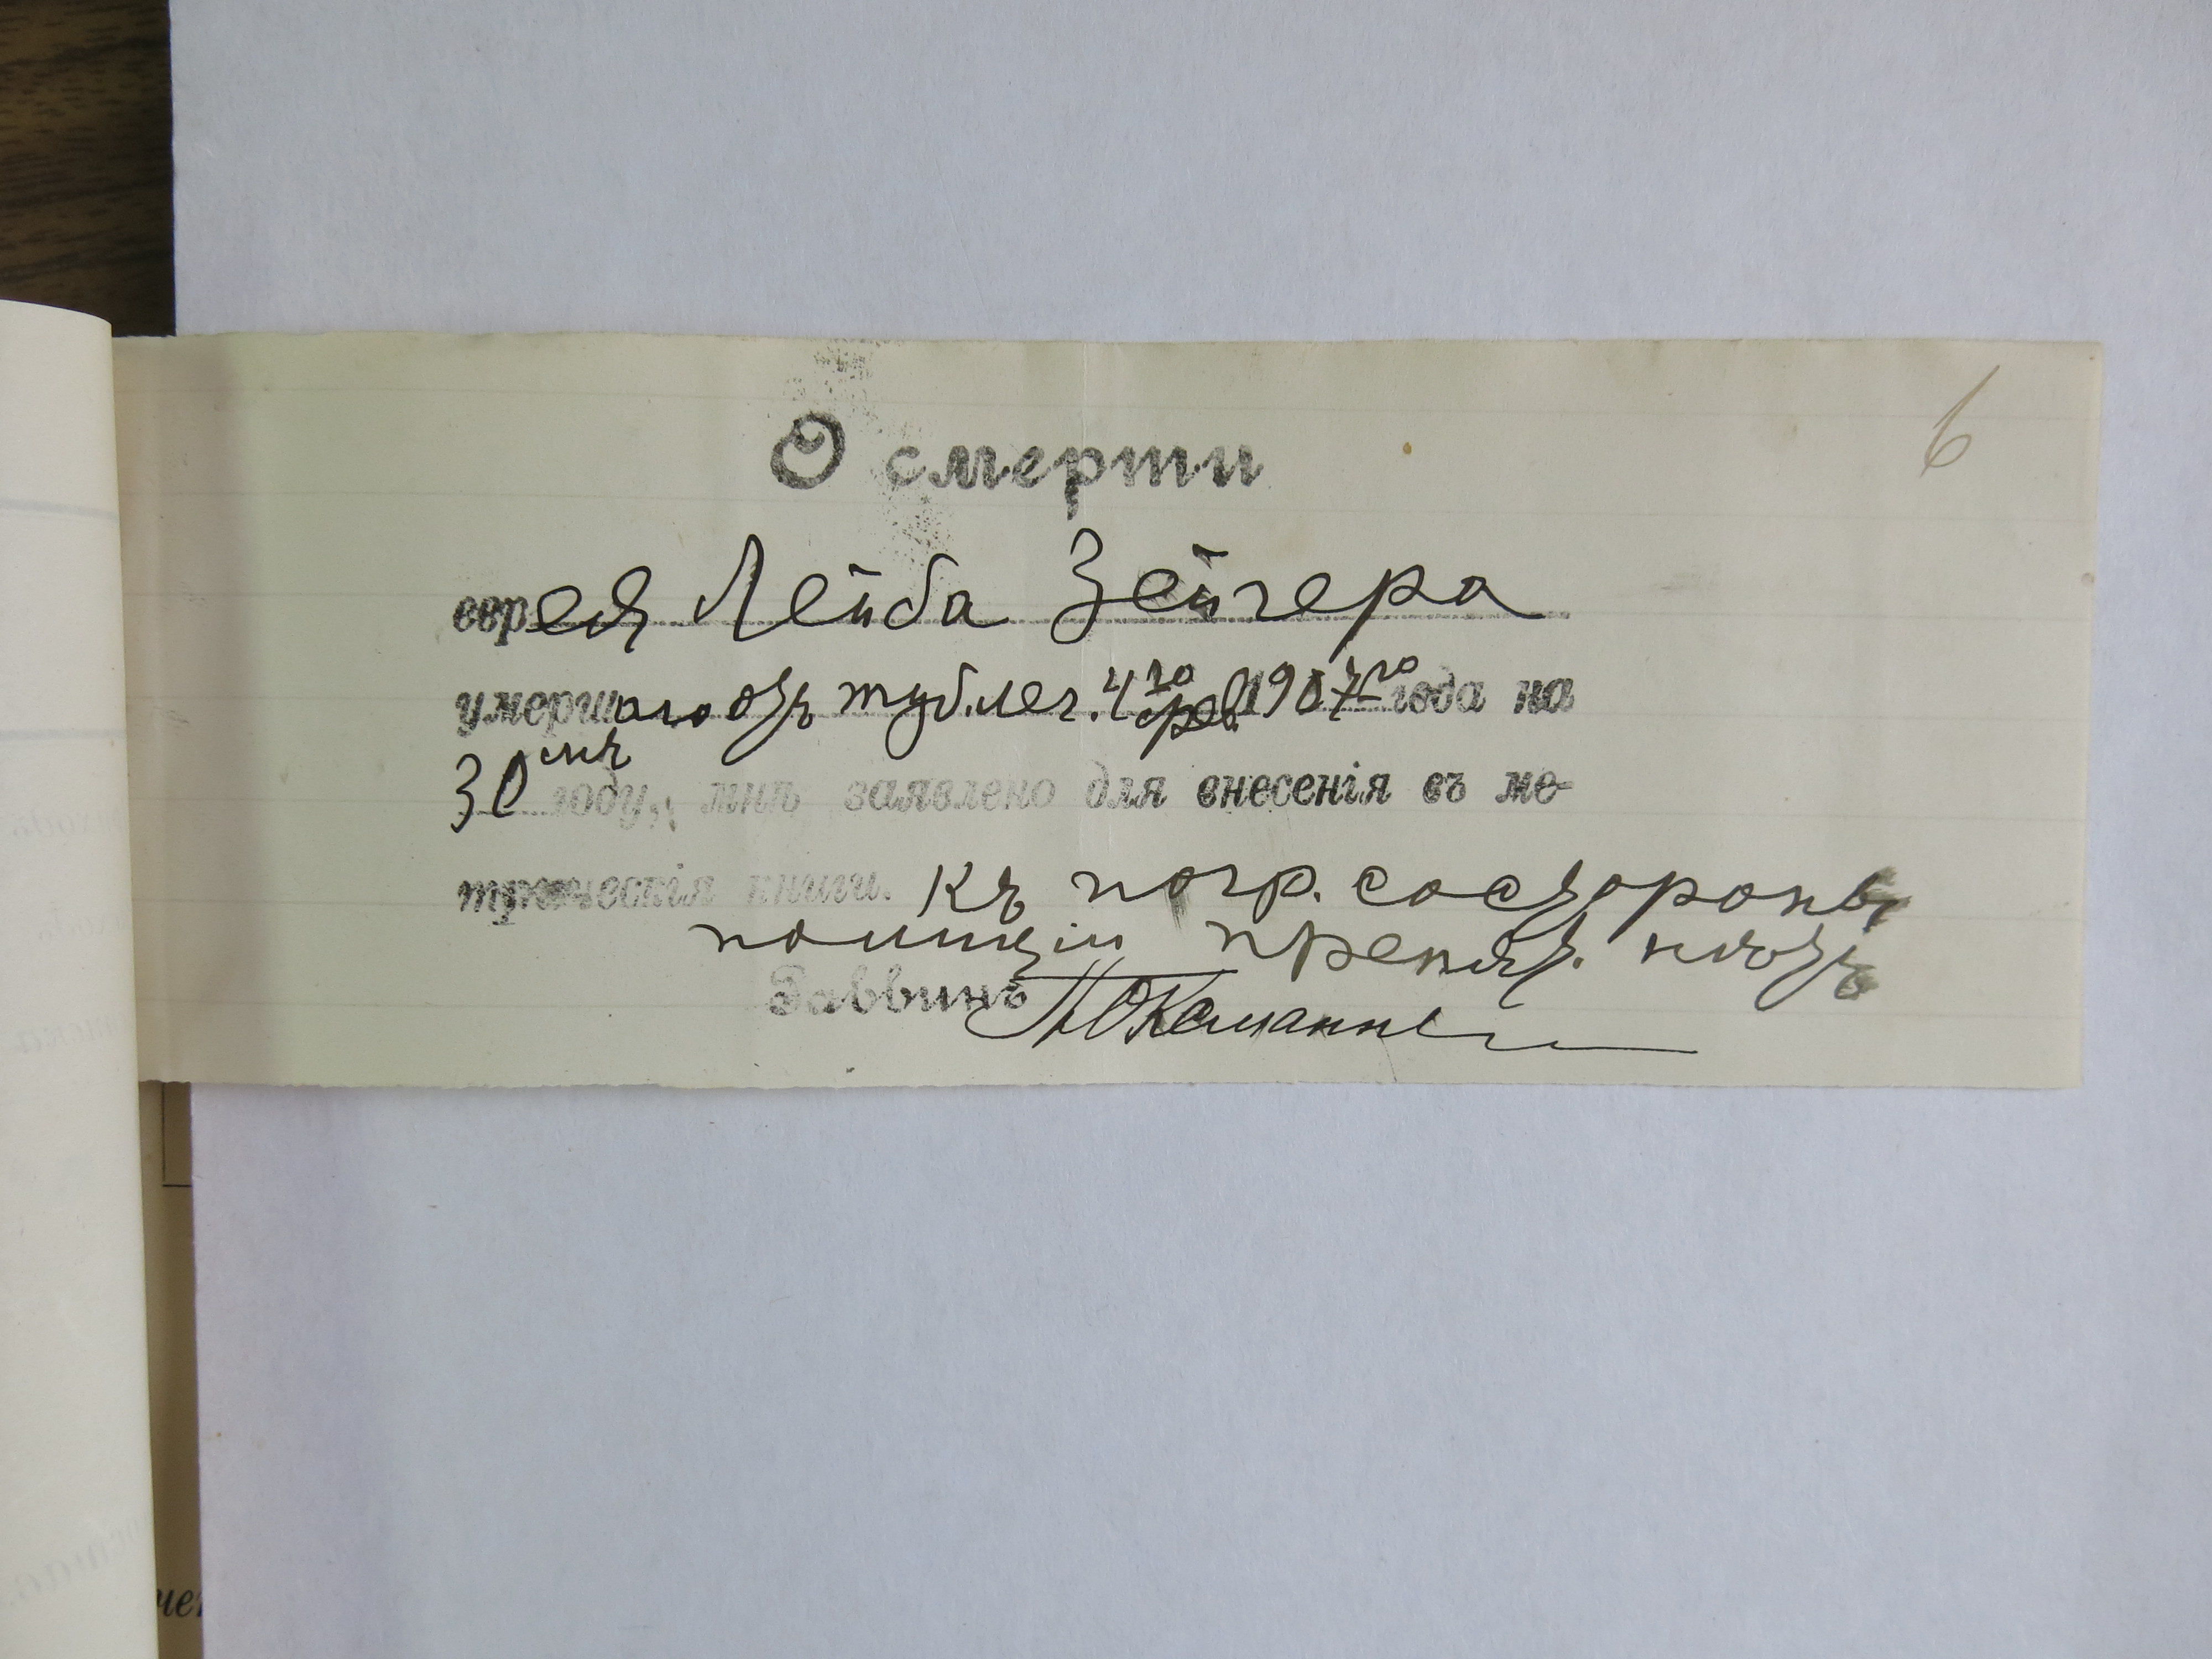 6
О смерти
еврея Лейба Зейгера
умершаго отъ туб. лег. 4го фев. 1907го года на
30мъ году, мнѣ заявлено для внесенія въ ме-
трическія книги. Къ погр. со стороны
полиціи препят. нѣтъ
Раввинъ